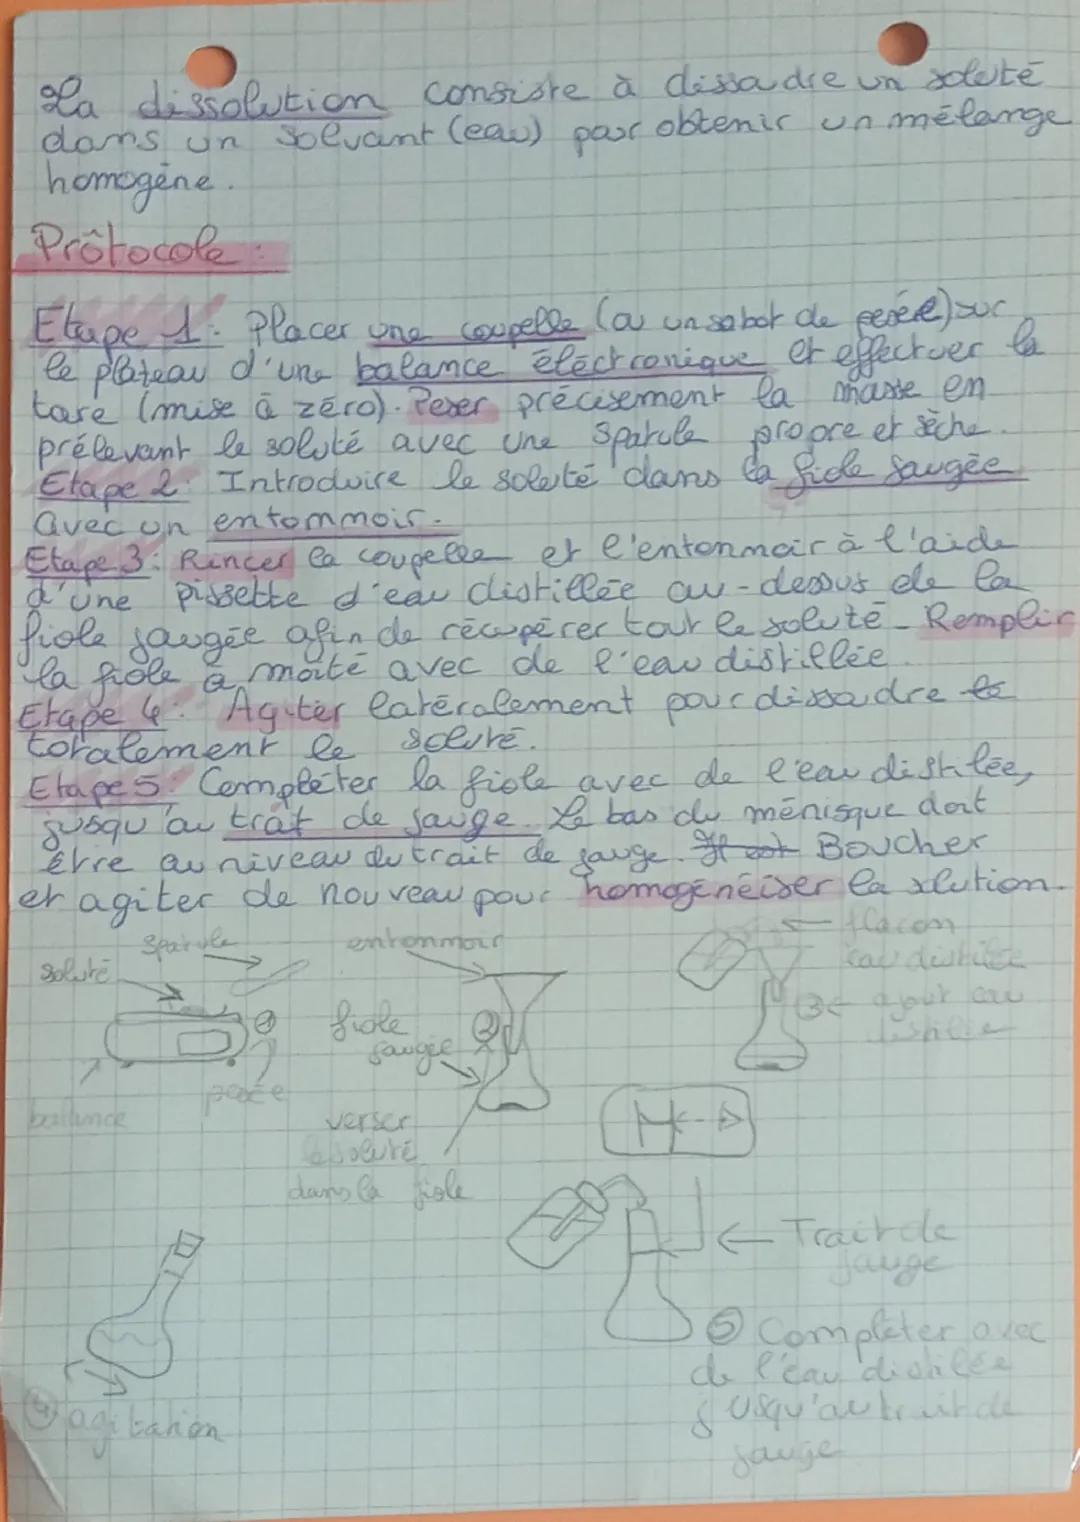 La dissolution consiste à dissoudre un soluté
dans un solvant (eau) pour obtenir un mélange
homogène.
Prôtocole :
Etape 1 : Placer une coupelle (ou un sabot de pesée) sur
le plateau d'une balance éléctronique et effectuer la
tare (mise à zéro). Peser précisement la masse en
prélevant le soluté avec une spatule propre et sèche.
Etape 2 : Introduire le soluté dans la fiole jaugée
avec un entonnoir.
Etape 3 : Rincer la coupelle et l'entonnoir à l'aide
d'une pissette d'eau distillée au-dessus de la
fiole jaugée afin de récupérer tout le soluté. Remplir
la fiole à moité avec de l'eau distillée.
Etape 4 : Agiter latéralement pour dissoudre
totalement le soluté.
Etape 5 : Compléter la fiole avec de l'eau distilée,
jusqu'au trait de jauge. Le bas du ménisque doit
être au niveau du trait de jauge. Boucher
et agiter de nouveau pour homogénéiser la solution.
spatule
entonnoir
flacon
soluté
eau distilée
1
fiole
jaugée
2
3
ajout eau
distilée
pesée
balance
verser
le soluté
dans la fiole
Trait de
jauge
5 Completer avec
de l'eau distilée
jusqu'au trait de
jauge
4 agitation